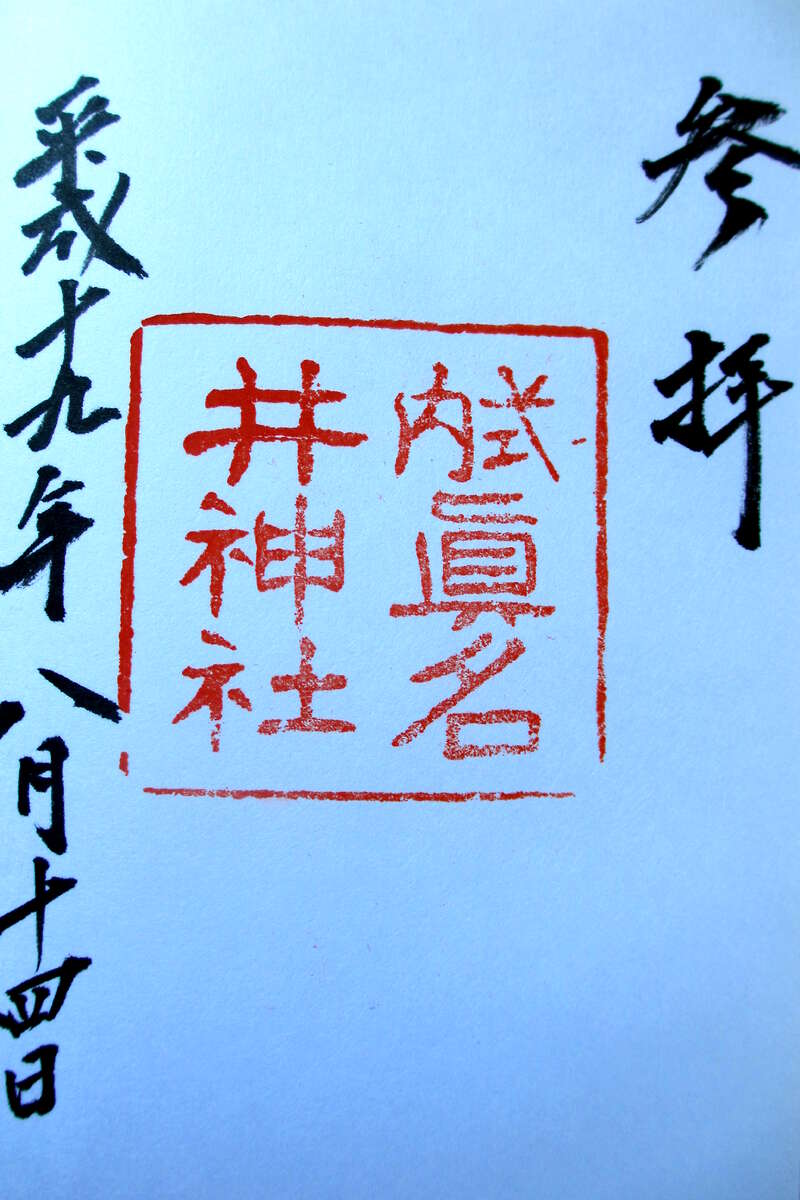 参拝
式内眞名
井神社
平成十九年八月十四日